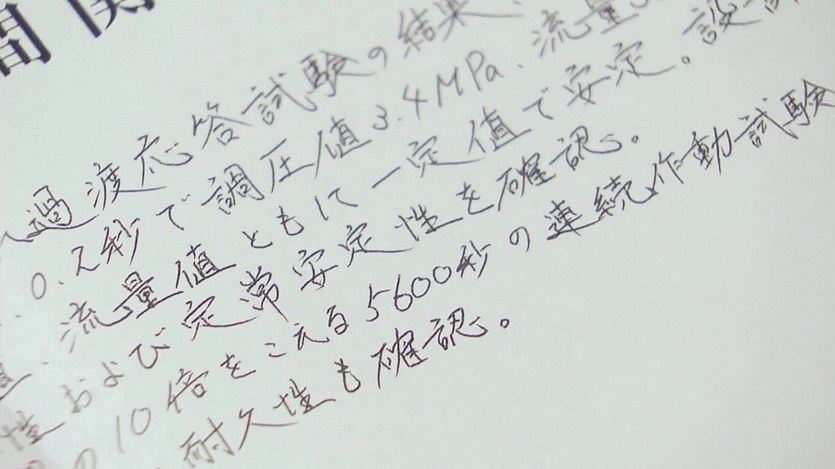 間関
過渡応答試験の結果、
0.2秒で調圧値3.4MPa、流量
流量値ともに一定値で安定。設
性および定常安定性を確認。
の10倍をこえる5600秒の連続作動試験
耐久性も確認。